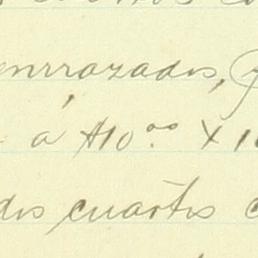 enrrazados,
á $10.00 x 1
dos cuartos